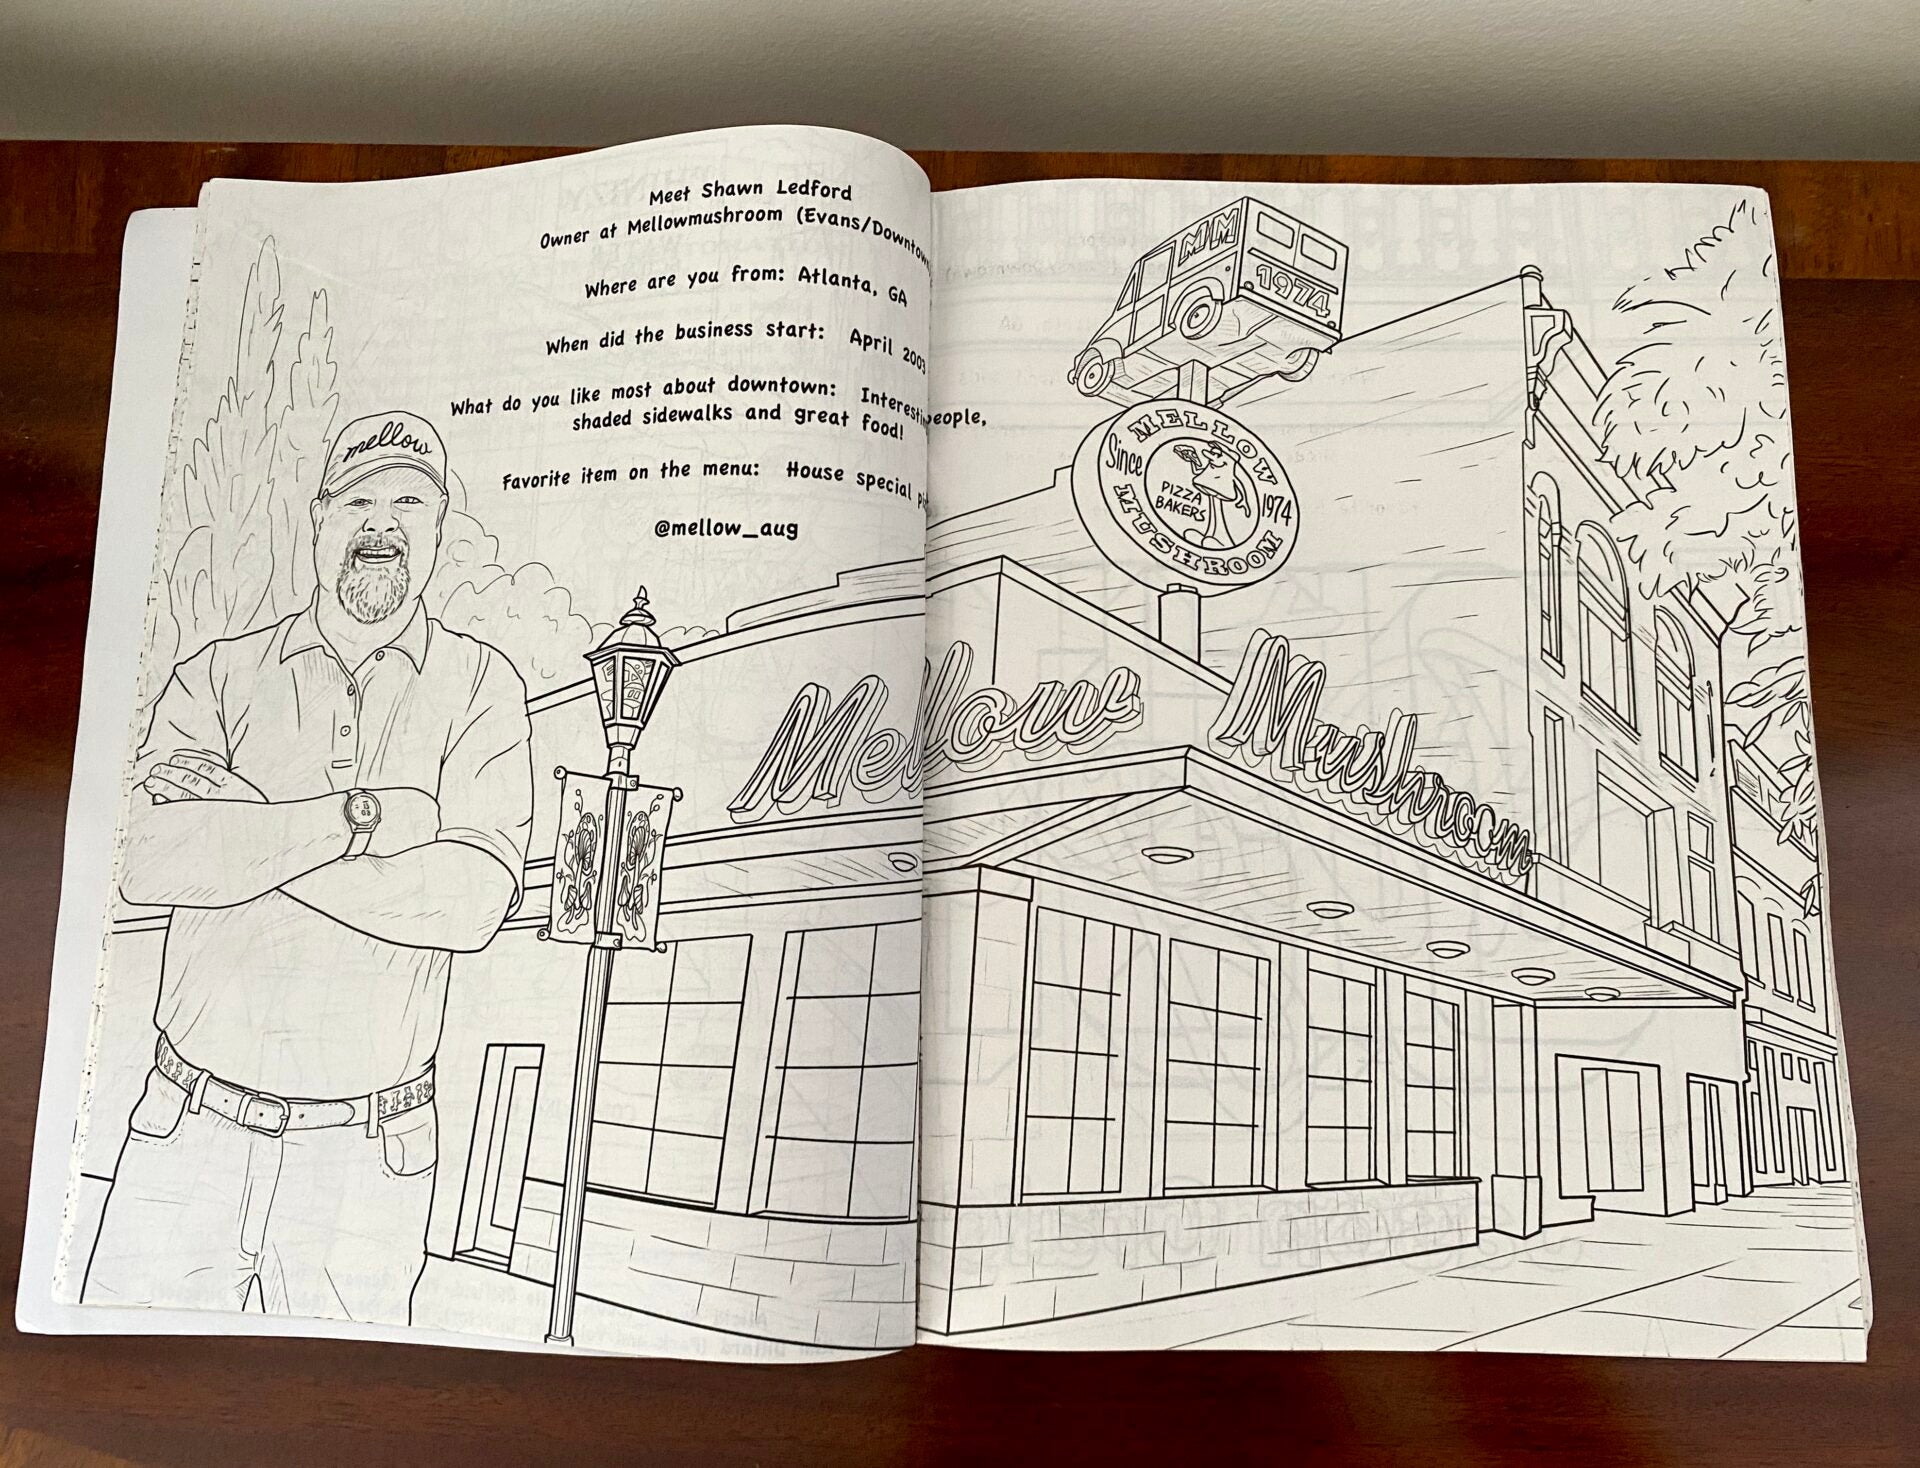 Meet Shawn Ledford
Owner at Mellowmushroom (Evans/Downtown
Where are you from: Atlanta, GA
When did the business start: April 2003
What do you like most about downtown: people,
shaded sidewalks and great food!
Favorite item on the menu: House special
@mellow_aug
mellow
MM
1974
MELLOW
Since
1974
PIZZA
BAKERS
MUSHROOM
Mellow
Mushroom